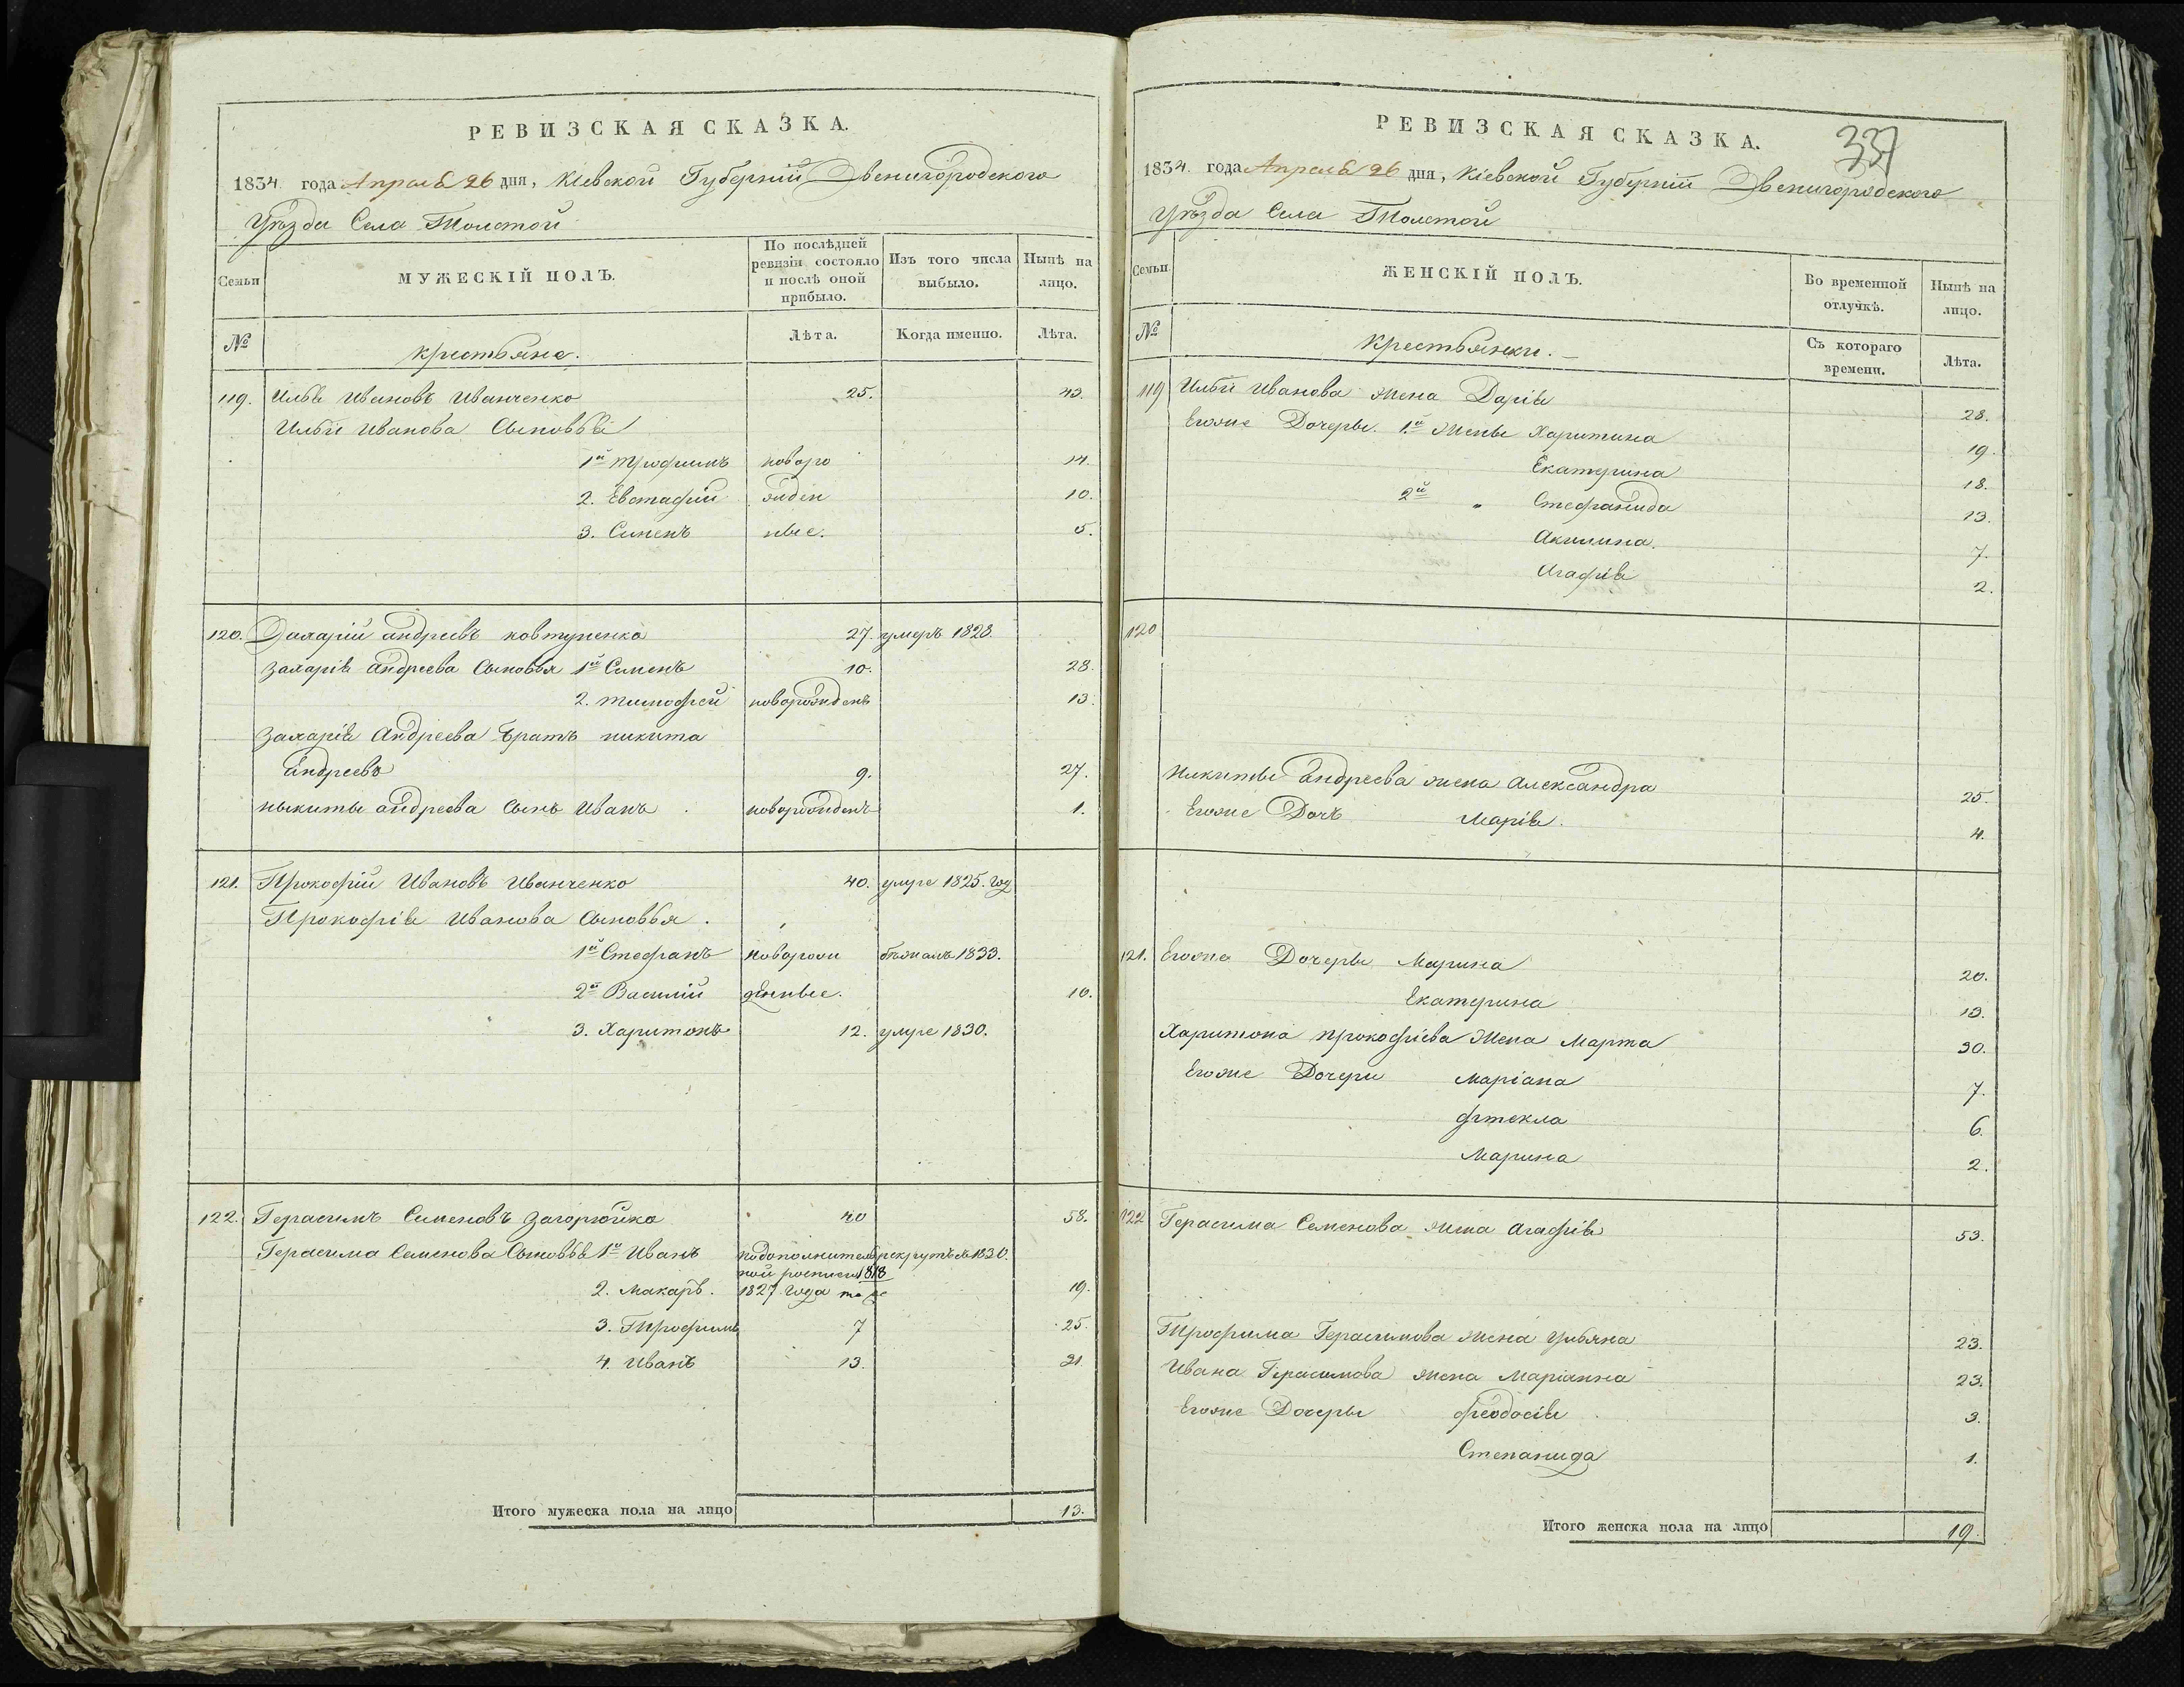 РЕВИЗСКАЯ СКАЗКА.
1834 года Апреля 26 дня, Кіевской Губерніи Звенигородского
Уѣзда Села Толстой
Семьи
МУЖЕСКІЙ ПОЛЪ.
По послѣдней ревизіи состояло и послѣ оной прибыло.
Изъ того числа выбыло.
Нынѣ на лицо.
№
крестьяне.
Лѣта.
Когда именно.
Лѣта.
119. Илья Ивановъ Иванченко 25. 43.
Ильи Иванова Сыновья
1й Трофимъ новоро 14.
2. Евстафій жден 10.
3. Сименъ ные. 5.
120. Захарій андреевъ ковтуненко 27 умеръ 1828.
Захарія Андреева Сыновья 1й Сименъ 10. 28.
2. тимофей новорожденъ 13.
Захарія Андреева Братъ никита
андреевъ 9. 27.
никиты андреева Сынъ Иванъ новорожденъ 1.
121. Прокофій Ивановъ Иванченко 40. умре 1825. Год
Прокофія Иванова Сыновья.
1й Стефанъ новорож бѣжалъ 1833.
2й Василій денные. 10.
3. Харитонъ 12. умре 1830.
122. Герасимъ Семеновъ Загоруйко 40 58.
Герасима Семенова Сыновья 1й Иванъ подополнитель рекрутъ въ 1830.
ной росписи 1818
2. Макаръ. 1827 года то же 19.
3. Трофимъ 7 25.
4. Иванъ 13. 31.
Итого мужеска пола на лицо 13.
РЕВИЗСКАЯ СКАЗКА.
337
1834 года Апреля 26 дня, Кіевской Губерніи Звенигородского
Уѣзда Села Толстой
Семьи
ЖЕНСКІЙ ПОЛЪ.
Во временной отлучкѣ.
Нынѣ на лицо.
№
Крестьянки.
Съ котораго времени.
Лѣта.
119 Ильи Иванова жена Дарія 28.
Егоже Дочеры. 1й Жены Харитина 19.
Екатерина 18.
2й " Стефанида 13.
Акилина. 7.
Агафія 2.
120
Никиты андреева жена Александра 25.
Егоже Дочъ Марія. 4.
121. Егоже Дочеры Марина 20.
Екатерина 13.
Харитона прокофіева Жена Марта 30.
Егоже Дочери Маріана 7.
Фтекла 6.
Марина 2.
122 Герасима Семенова жена Агафія 53.
Трофима Герасимова жена Ульяна 23.
Ивана Герасимова жена Маріанна 23.
Егоже Дочеры Феодосія 3.
Степанида 1.
Итого женска пола на лицо 19.